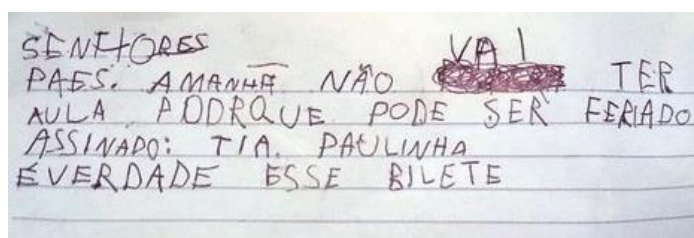 SENHORES VAI
PAES. AMANHÃ NÃO TER
AULA PODRQUE PODE SER FERIADO
ASSINADO: TIA PAULINHA
É VERDADE ESSE BILETE